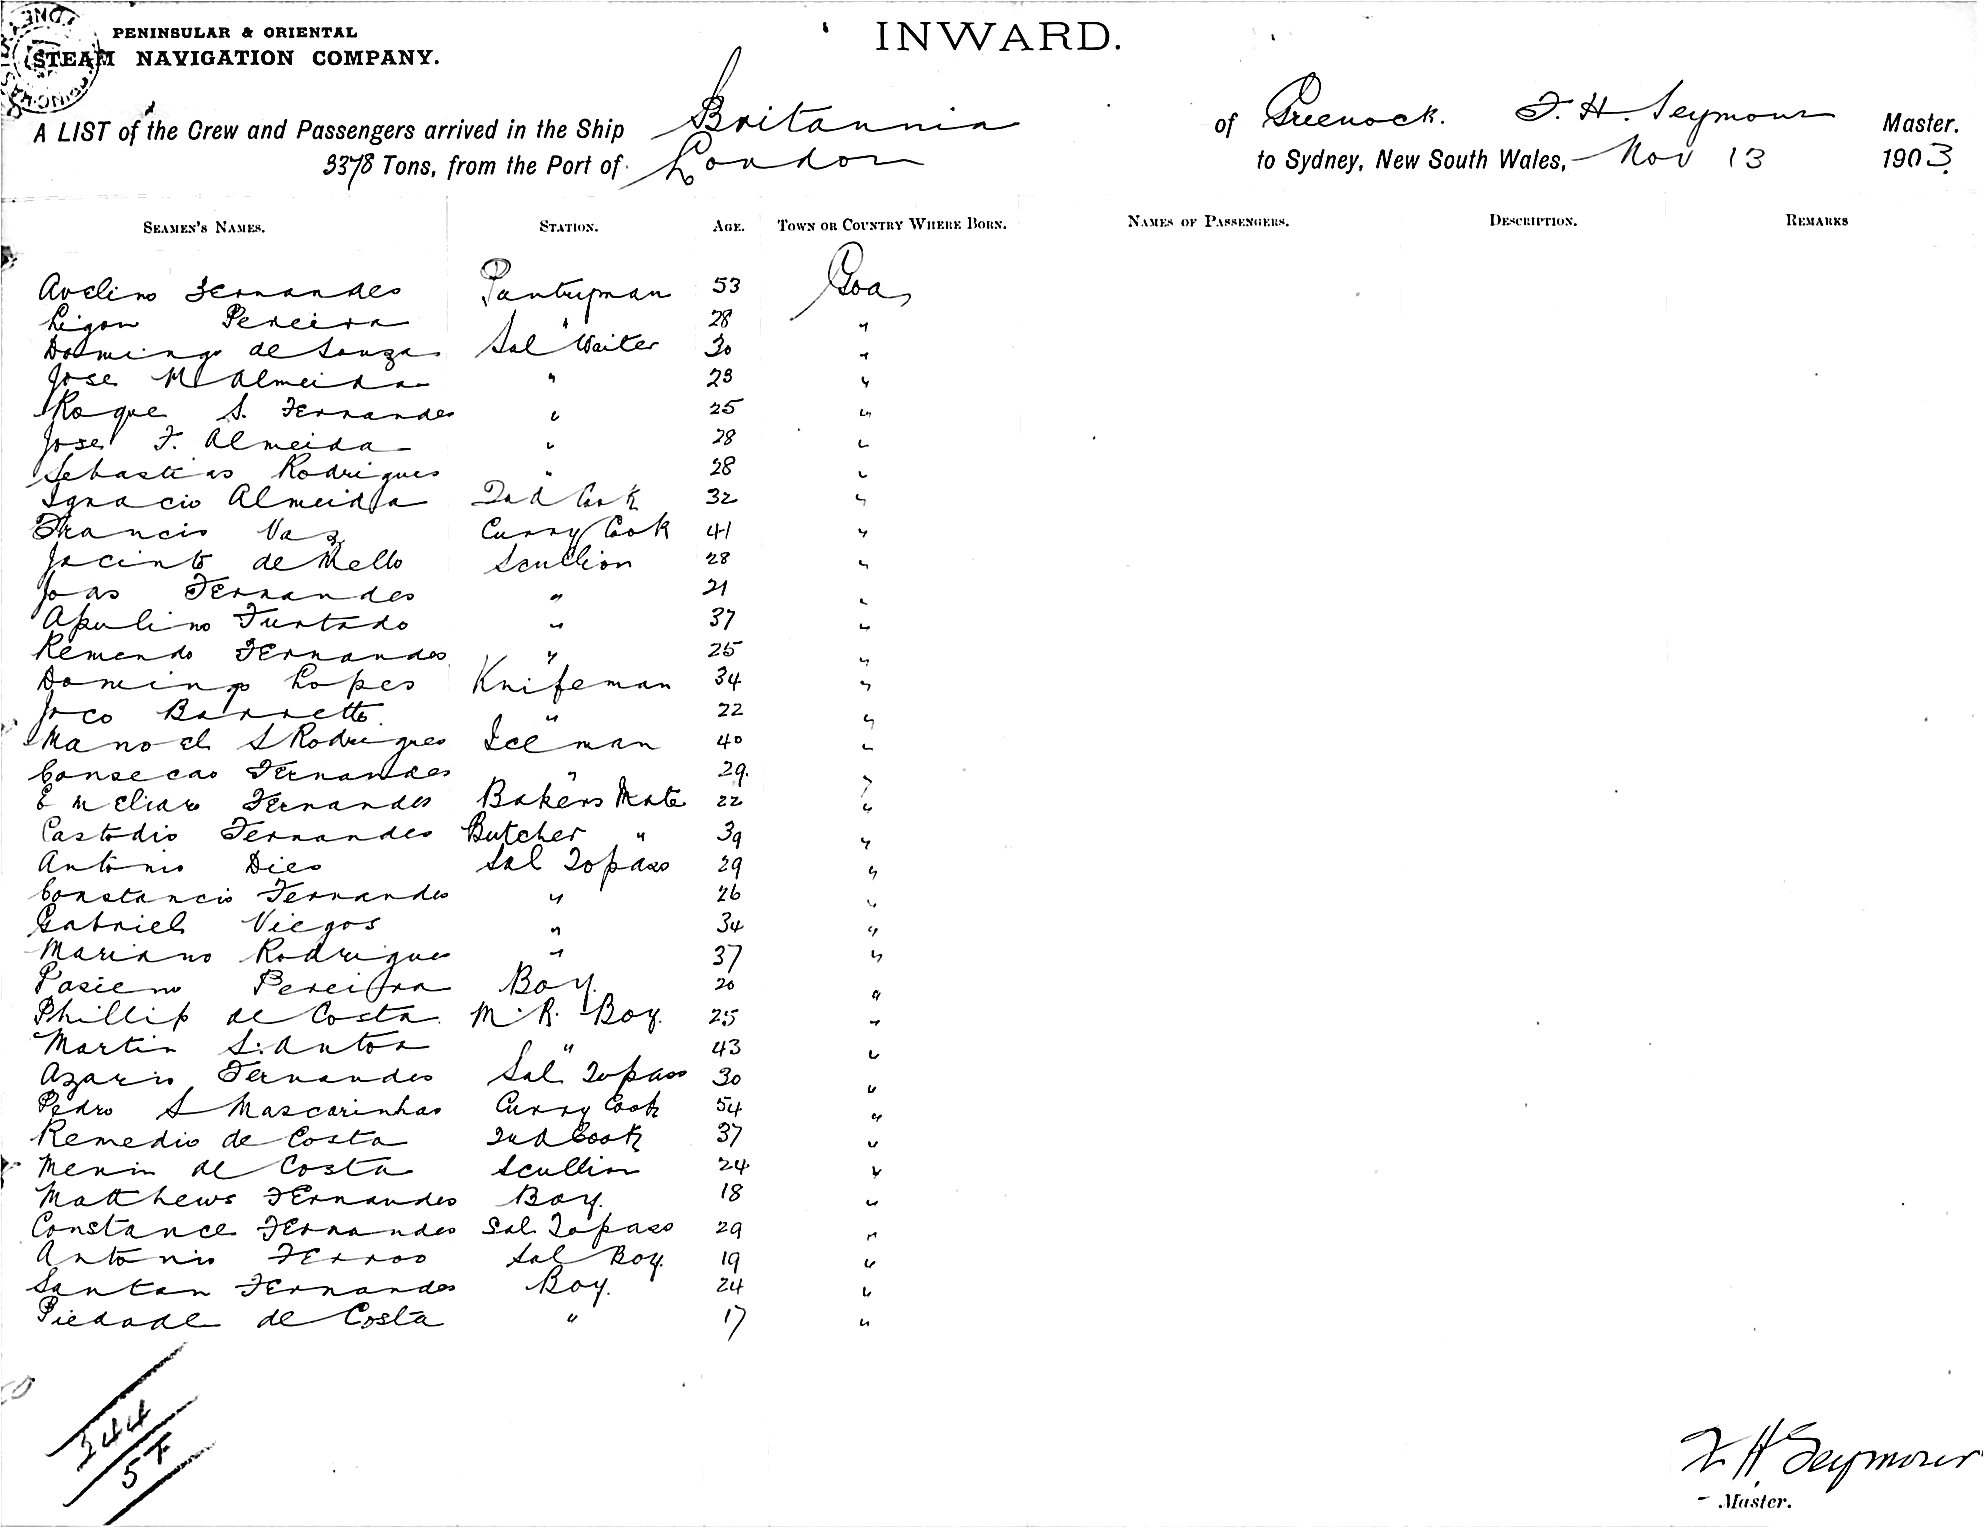 PENINSULAR & ORIENTAL
STEAM NAVIGATION COMPANY.
INWARD.
A LIST of the Crew and Passengers arrived in the Ship Britannia of Greenock. F. H. Seymour Master.
3378 Tons, from the Port of London to Sydney, New South Wales, Nov 13 1903.
SEAMEN'S NAMES. STATION. AGE. TOWN OR COUNTRY WHERE BORN. NAMES OF PASSENGERS. DESCRIPTION. REMARKS
Avelino Fernandes Pantryman 53 Goa
Ligon Pereira " 28 "
Domingo de Souza Sal Waiter 30 "
Jose M Almeida " 23 "
Roque S. Fernandes " 25 "
Jose F. Almeida " 28 "
Sebastiao Rodrigues " 28 "
Ignacio Almeida 2nd Cook 32 "
Francis Vaz Curry Cook 41 "
Jacinto de Mello Scullion 28 "
Joao Fernandes " 21 "
Apulino Furtado " 37 "
Remendo Fernandes " 25 "
Domingo Lopes Knifeman 34 "
Joco Barretto " 22 "
Manoel S Rodrigues Iceman 40 "
Consecao Fernandes " 29. "
Fernandes Bakers Mate 22 "
Castodio Fernandes Butcher " 39 "
Antonio Dies Sal Topass 29 "
Constancio Fernandes " 26 "
Gabriel Viegos " 34 "
Mariano Rodrigues " 37 "
Pereira Boy. 20 "
Phillip de Costa M. R. Boy. 25 "
Martin S. Anton " 43 "
Azario Fernandes Sal Topass 30 "
Pedro S Mascarinhas Curry Cook 54 "
Remedio de Costa 2nd Cook 37 "
Menin de Costa Scullion 24 "
Matthews Fernandes Boy. 18 "
Constance Fernandes Sal Topass 29 "
Antonio Ferroo Sal Boy. 19 "
Santan Fernandes Boy. 24 "
Piedade de Costa " 17 "
344
57
F H Seymour
Master.